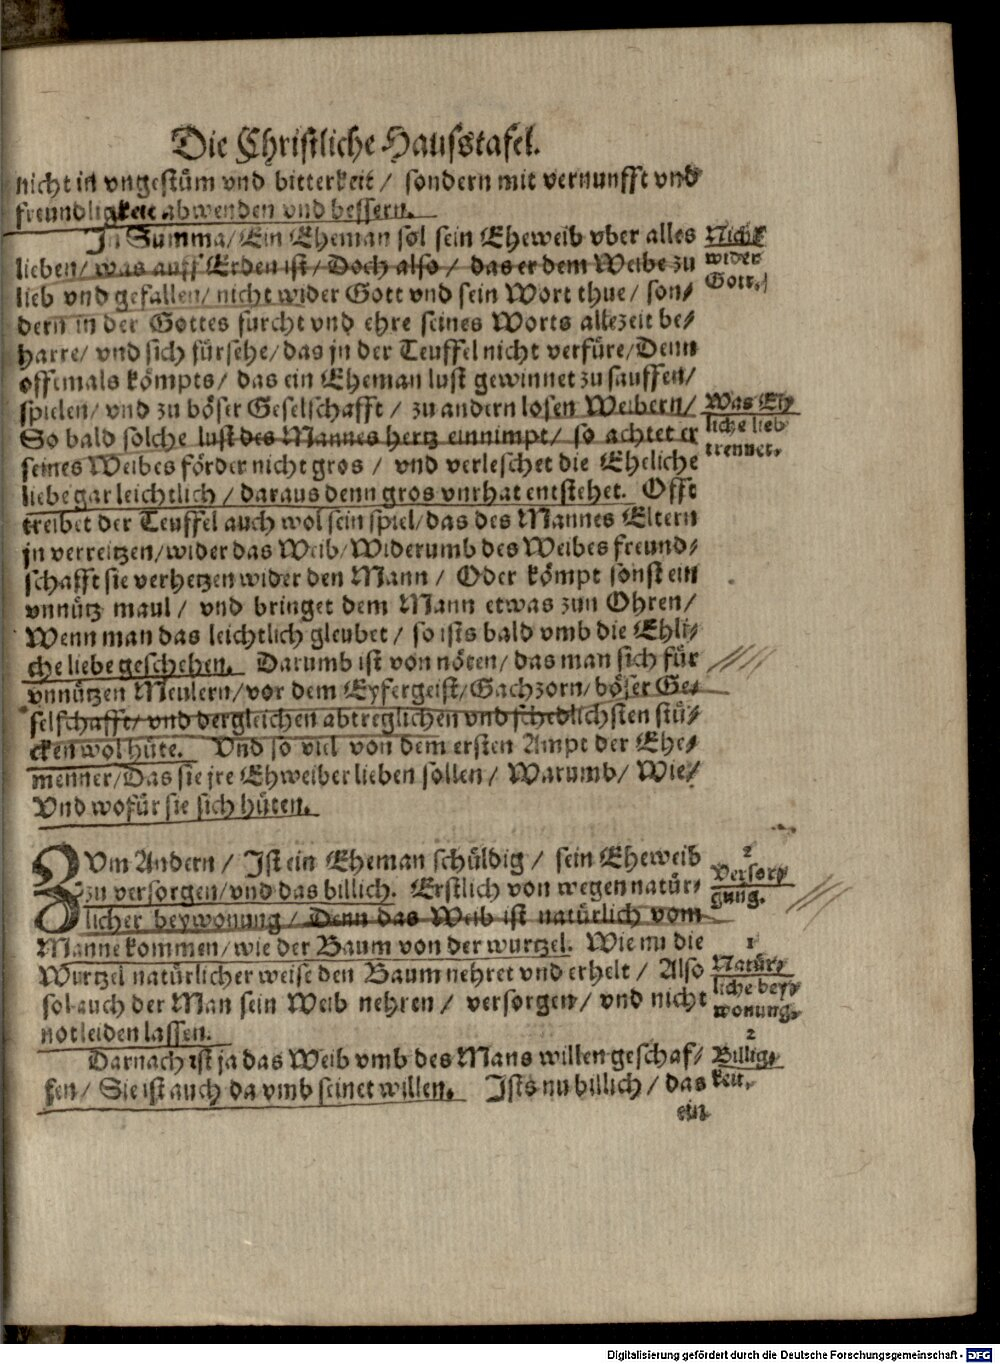 Die Christliche Hausstafel.
nicht in vngestüm vnd bitterkeit / sondern mit vernunfft vnd
freundligkeit abwenden vnd bessern.
In Summa / Ein Eheman sol sein Eheweib vber alles
lieben / was auff Erden ist / Doch also / das er dem Weibe zu
lieb vnd gefallen / nicht wider Gott vnd sein Wort thue / son-
dern in der Gottes furcht vnd ehre seines Worts allezeit be-
harre / vnd sich fürsehe / das jn der Teuffel nicht verfüre / Denn
offtmals kömpts / das ein Eheman lust gewinnet zu sauffen /
spielen / vnd zu böser Geselschafft / zu andern losen Weibern /
So bald solche lust des Mannes hertz einnimpt / so achtet er
seines Weibes förder nicht gros / vnd verleschet die Eheliche
liebe gar leichtlich / daraus denn gros vnrhat entstehet. Offt
treibet der Teuffel auch wol sein spiel / das des Mannes Eltern
jn verreitzen / wider das Weib / Widerumb des Weibes freund-
schafft sie verhetzen wider den Mann / Oder kömpt sonst ein
vnnütz maul / vnd bringet dem Mann etwas zun Ohren /
Wenn man das leichtlich gleubet / so ists bald vmb die Ehli-
che liebe geschehen. Darumb ist von nöten / das man sich für
vnnützen Meulern / vor dem Eyfergeist / Gachzorn / böser Ge-
selschafft / vnd dergleichen abtreglichen vnd schedlichsten stü-
cken wol hüte. Vnd so viel von dem ersten Ampt der Ehe-
menner / Das sie jre Ehweiber lieben sollen / Warumb / Wie /
Vnd wofür sie sich hüten.
ZVm Andern / Ist ein Eheman schüldig / sein Eheweib
zu versorgen / vnd das billich. Erstlich von wegen natür-
licher beywonung / Denn das Weib ist natürlich vom
Manne kommen / wie der Baum von der wurtzel. Wie nu die
Wurtzel natürlicher weise den Baum nehret vnd erhelt / Also
sol auch der Man sein Weib nehren / versorgen / vnd nicht
not leiden lassen.
Darnach ist ja das Weib vmb des Mans willen geschaf-
fen / Sie ist auch da vmb seinet willen. Ists nu billich / das
ein
Nicht
wider
Gott.
Was Eh-
liche lieb
trennet.
2
Versor-
gung.
1
Natür-
liche bey-
wonung.
2
Billig-
keit.
Digitalisierung gefördert durch die Deutsche Forschungsgemeinschaft - DFG